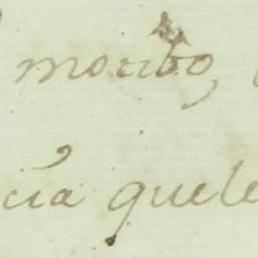 motibo,
cia quele